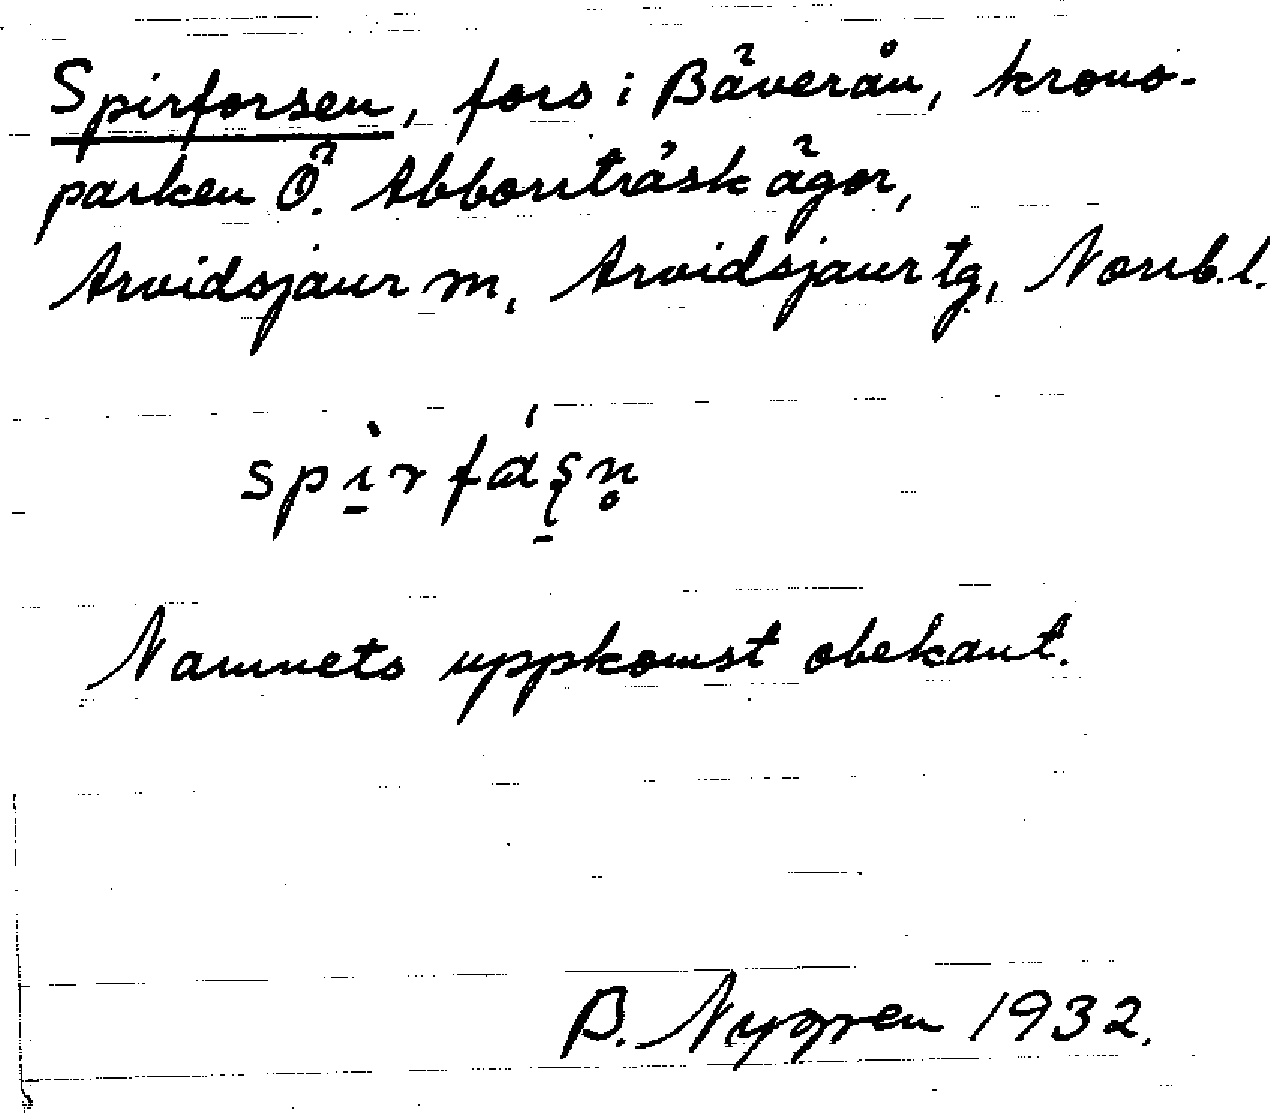 Spirforsen, fors i Bäverån, krono-
parken Ö. Abborrträsk ägor,
Arvidsjaur m, Arvidsjaur tg, Norrb. l.
spì̠rfɑ́ʂ̠n̥
Namnets uppkomst obekant.
B. Nygren 1932.